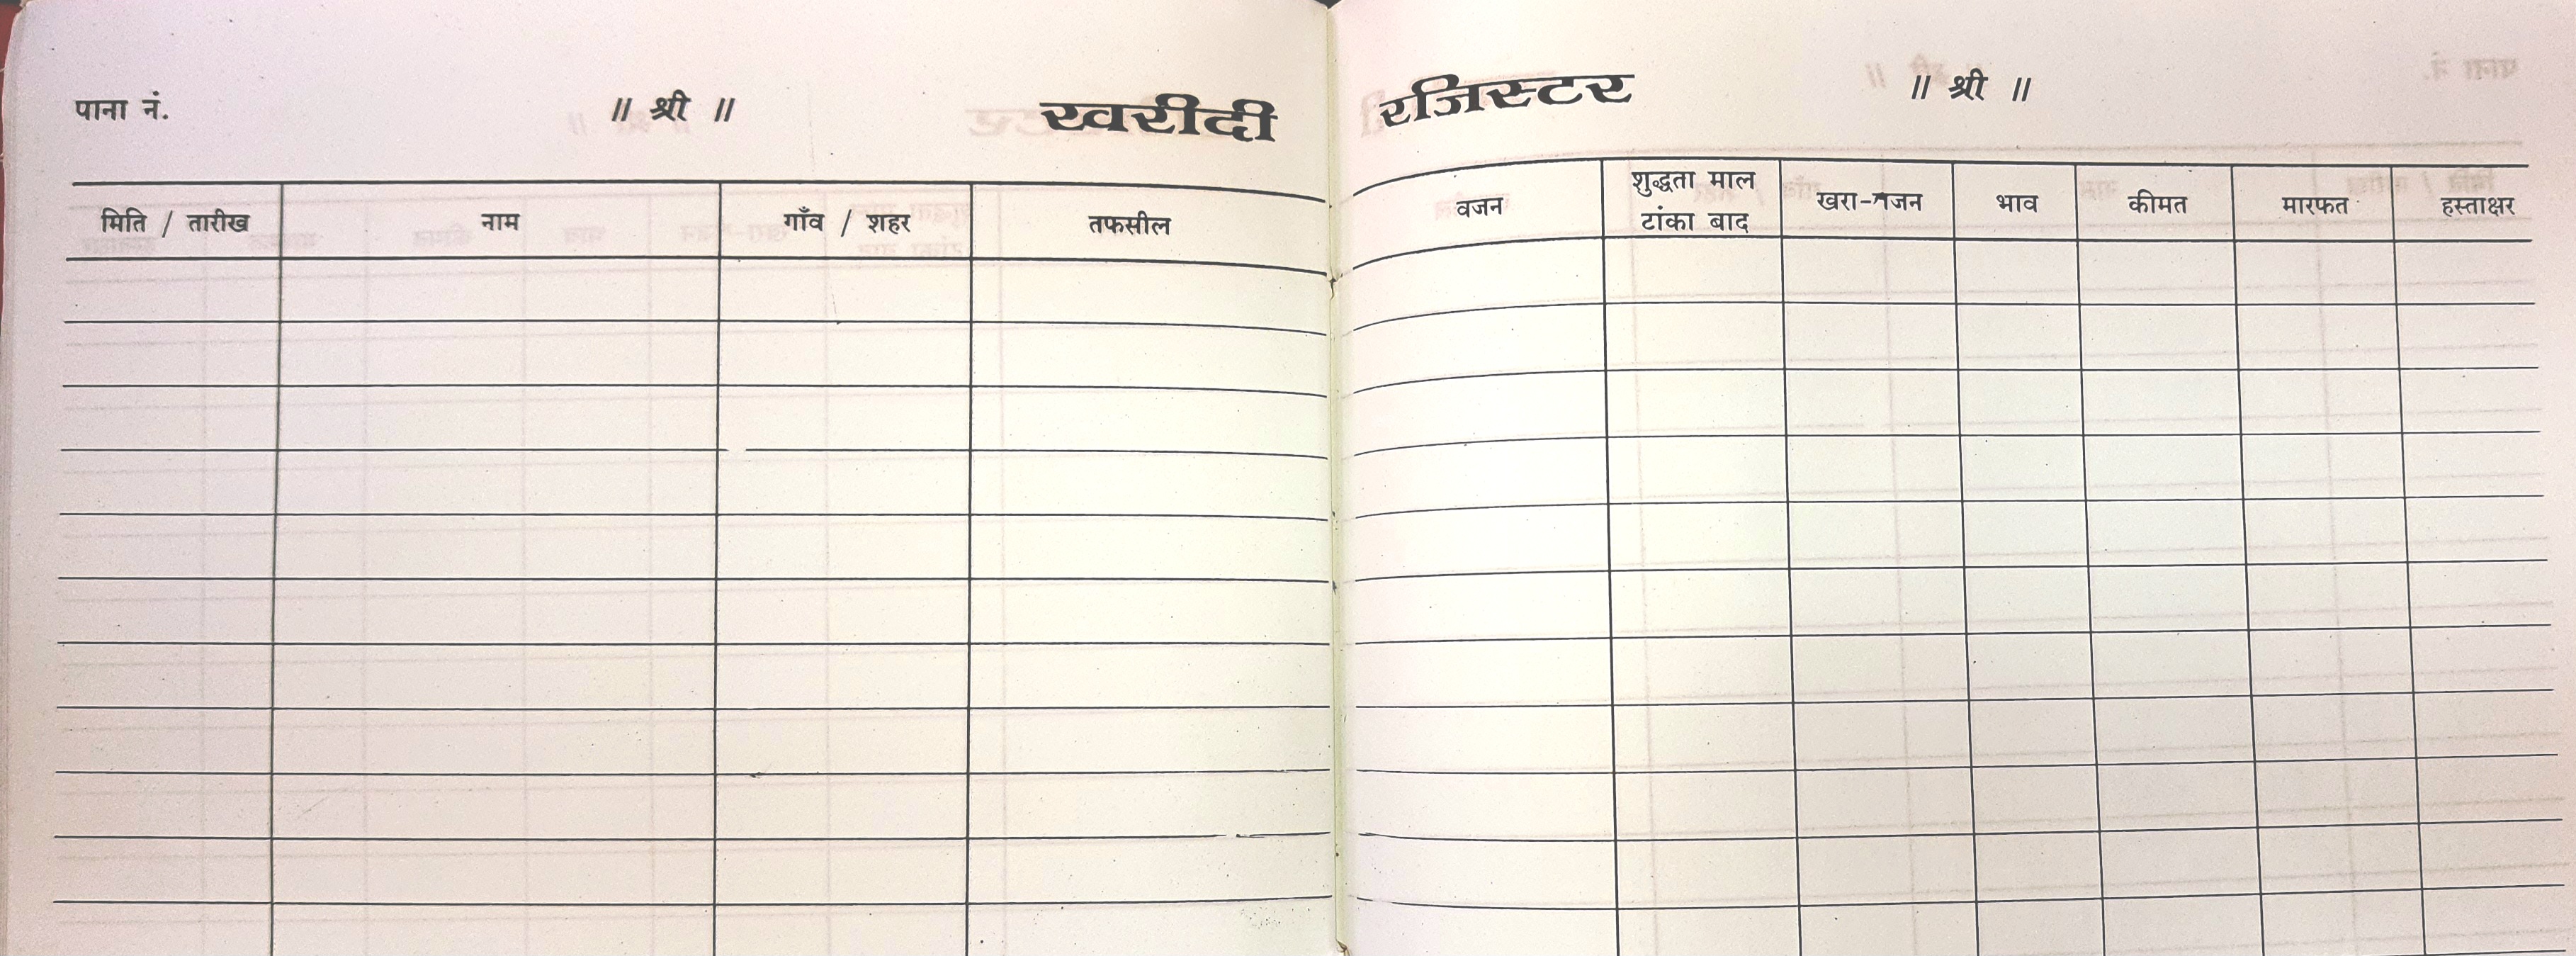 पाना नं. ॥ श्री ॥ खरीदी रजिस्टर ॥ श्री ॥
मिति / तारीख नाम गाँव / शहर तफसील वजन शुद्धता माल टांका बाद खरा-वजन भाव कीमत मारफत हस्ताक्षर